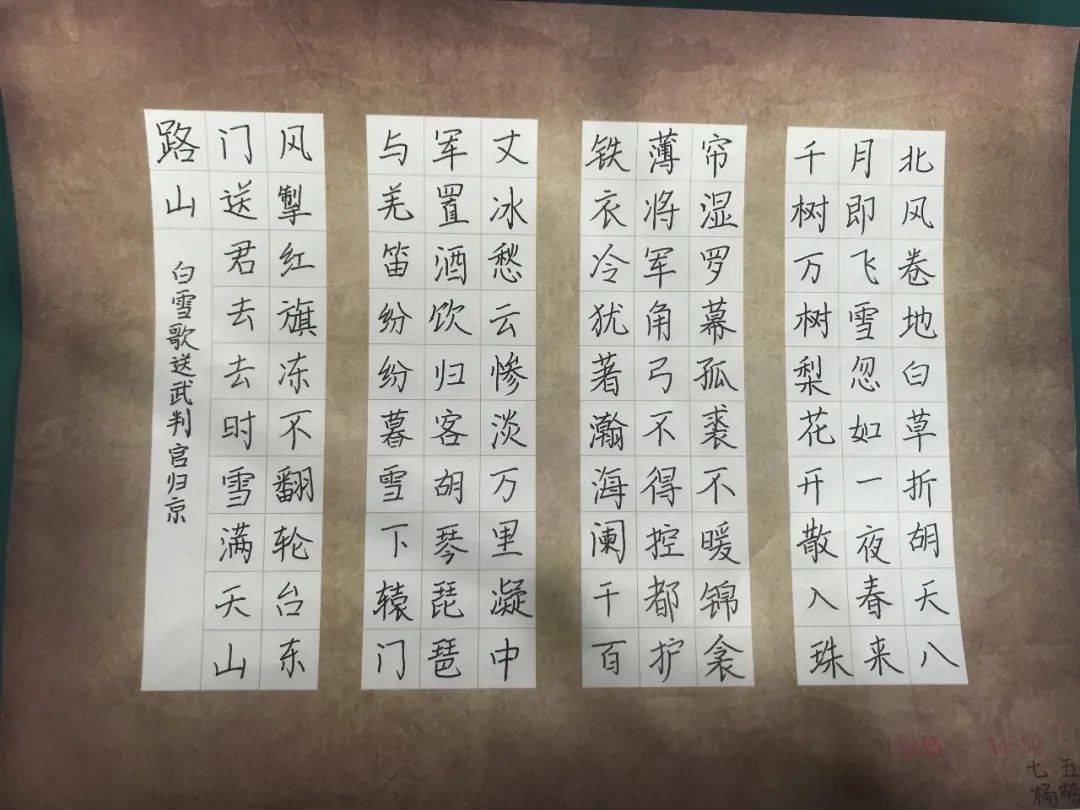 北风卷地白草折胡天八
月即飞雪忽如一夜春来
千树万树梨花开散入珠
帘湿罗幕孤裘不暖锦衾
薄将军角弓不得控都护
铁衣冷犹著瀚海阑干百
丈冰愁云惨淡万里凝中
军置酒饮归客胡琴琵琶
与羌笛纷纷暮雪下辕门
风掣红旗冻不翻轮台东
门送君去去时雪满天山
路山
白雪歌送武判官归京
七.五
杨